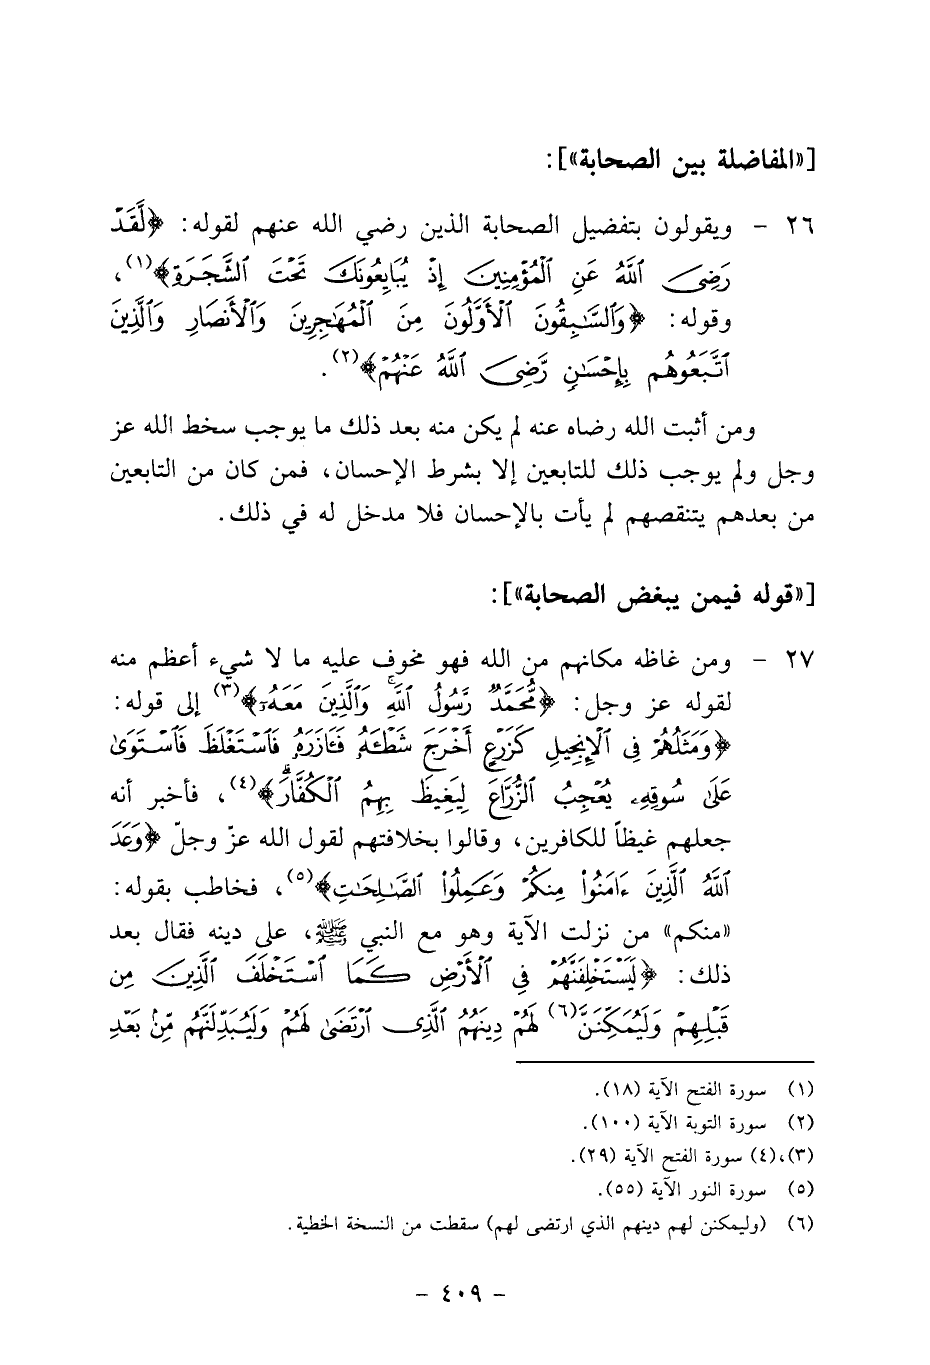 [«المفاضلة بين الصحابة»]:
٢٦ - ويقولون بتفضيل الصحابة الذين رضي الله عنهم لقوله: ﴿لَّقَدْ
رَضِىَ ٱللَّهُ عَنِ ٱلْمُؤْمِنِينَ إِذْ يُبَايِعُونَكَ تَحْتَ ٱلشَّجَرَةِ﴾(١)،
وقوله: ﴿وَٱلسَّٰبِقُونَ ٱلْأَوَّلُونَ مِنَ ٱلْمُهَٰجِرِينَ وَٱلْأَنصَارِ وَٱلَّذِينَ
ٱتَّبَعُوهُم بِإِحْسَٰنٍ رَّضِىَ ٱللَّهُ عَنْهُمْ﴾(٢).
ومن أثبت الله رضاه عنه لم يكن منه بعد ذلك ما يوجب سخط الله عز
وجل ولم يوجب ذلك للتابعين إلا بشرط الإحسان، فمن كان من التابعين
من بعدهم يتنقصهم لم يأت بالإحسان فلا مدخل له في ذلك.
[«قوله فيمن يبغض الصحابة»]:
٢٧ - ومن غاظه مكانهم من الله فهو مخوف عليه ما لا شيء أعظم منه
لقوله عز وجل: ﴿مُّحَمَّدٌ رَّسُولُ ٱللَّهِ ۚ وَٱلَّذِينَ مَعَهُۥٓ﴾(٣) إلى قوله:
﴿وَمَثَلُهُمْ فِى ٱلْإِنجِيلِ كَزَرْعٍ أَخْرَجَ شَطْـَٔهُۥ فَـَٔازَرَهُۥ فَٱسْتَغْلَظَ فَٱسْتَوَىٰ
عَلَىٰ سُوقِهِۦ يُعْجِبُ ٱلزُّرَّاعَ لِيَغِيظَ بِهِمُ ٱلْكُفَّارَ ۗ﴾(٤)، فأخبر أنه
جعلهم غيظاً للكافرين، وقالوا بخلافتهم لقول الله عزّ وجلّ ﴿وَعَدَ
ٱللَّهُ ٱلَّذِينَ ءَامَنُوا۟ مِنكُمْ وَعَمِلُوا۟ ٱلصَّٰلِحَٰتِ﴾(٥)، فخاطب بقوله:
«منكم» من نزلت الآية وهو مع النبي ﷺ، على دينه فقال بعد
ذلك: ﴿لَيَسْتَخْلِفَنَّهُمْ فِى ٱلْأَرْضِ كَمَا ٱسْتَخْلَفَ ٱلَّذِينَ مِن
قَبْلِهِمْ وَلَيُمَكِّنَنَّ(٦) لَهُمْ دِينَهُمُ ٱلَّذِى ٱرْتَضَىٰ لَهُمْ وَلَيُبَدِّلَنَّهُم مِّنۢ بَعْدِ
(١) سورة الفتح الآية (١٨).
(٢) سورة التوبة الآية (١٠٠).
(٣)،(٤) سورة الفتح الآية (٢٩).
(٥) سورة النور الآية (٥٥).
(٦) (وليمكنن لهم دينهم الذي ارتضى لهم) سقطت من النسخة الخطية.
- ٤٠٩ -